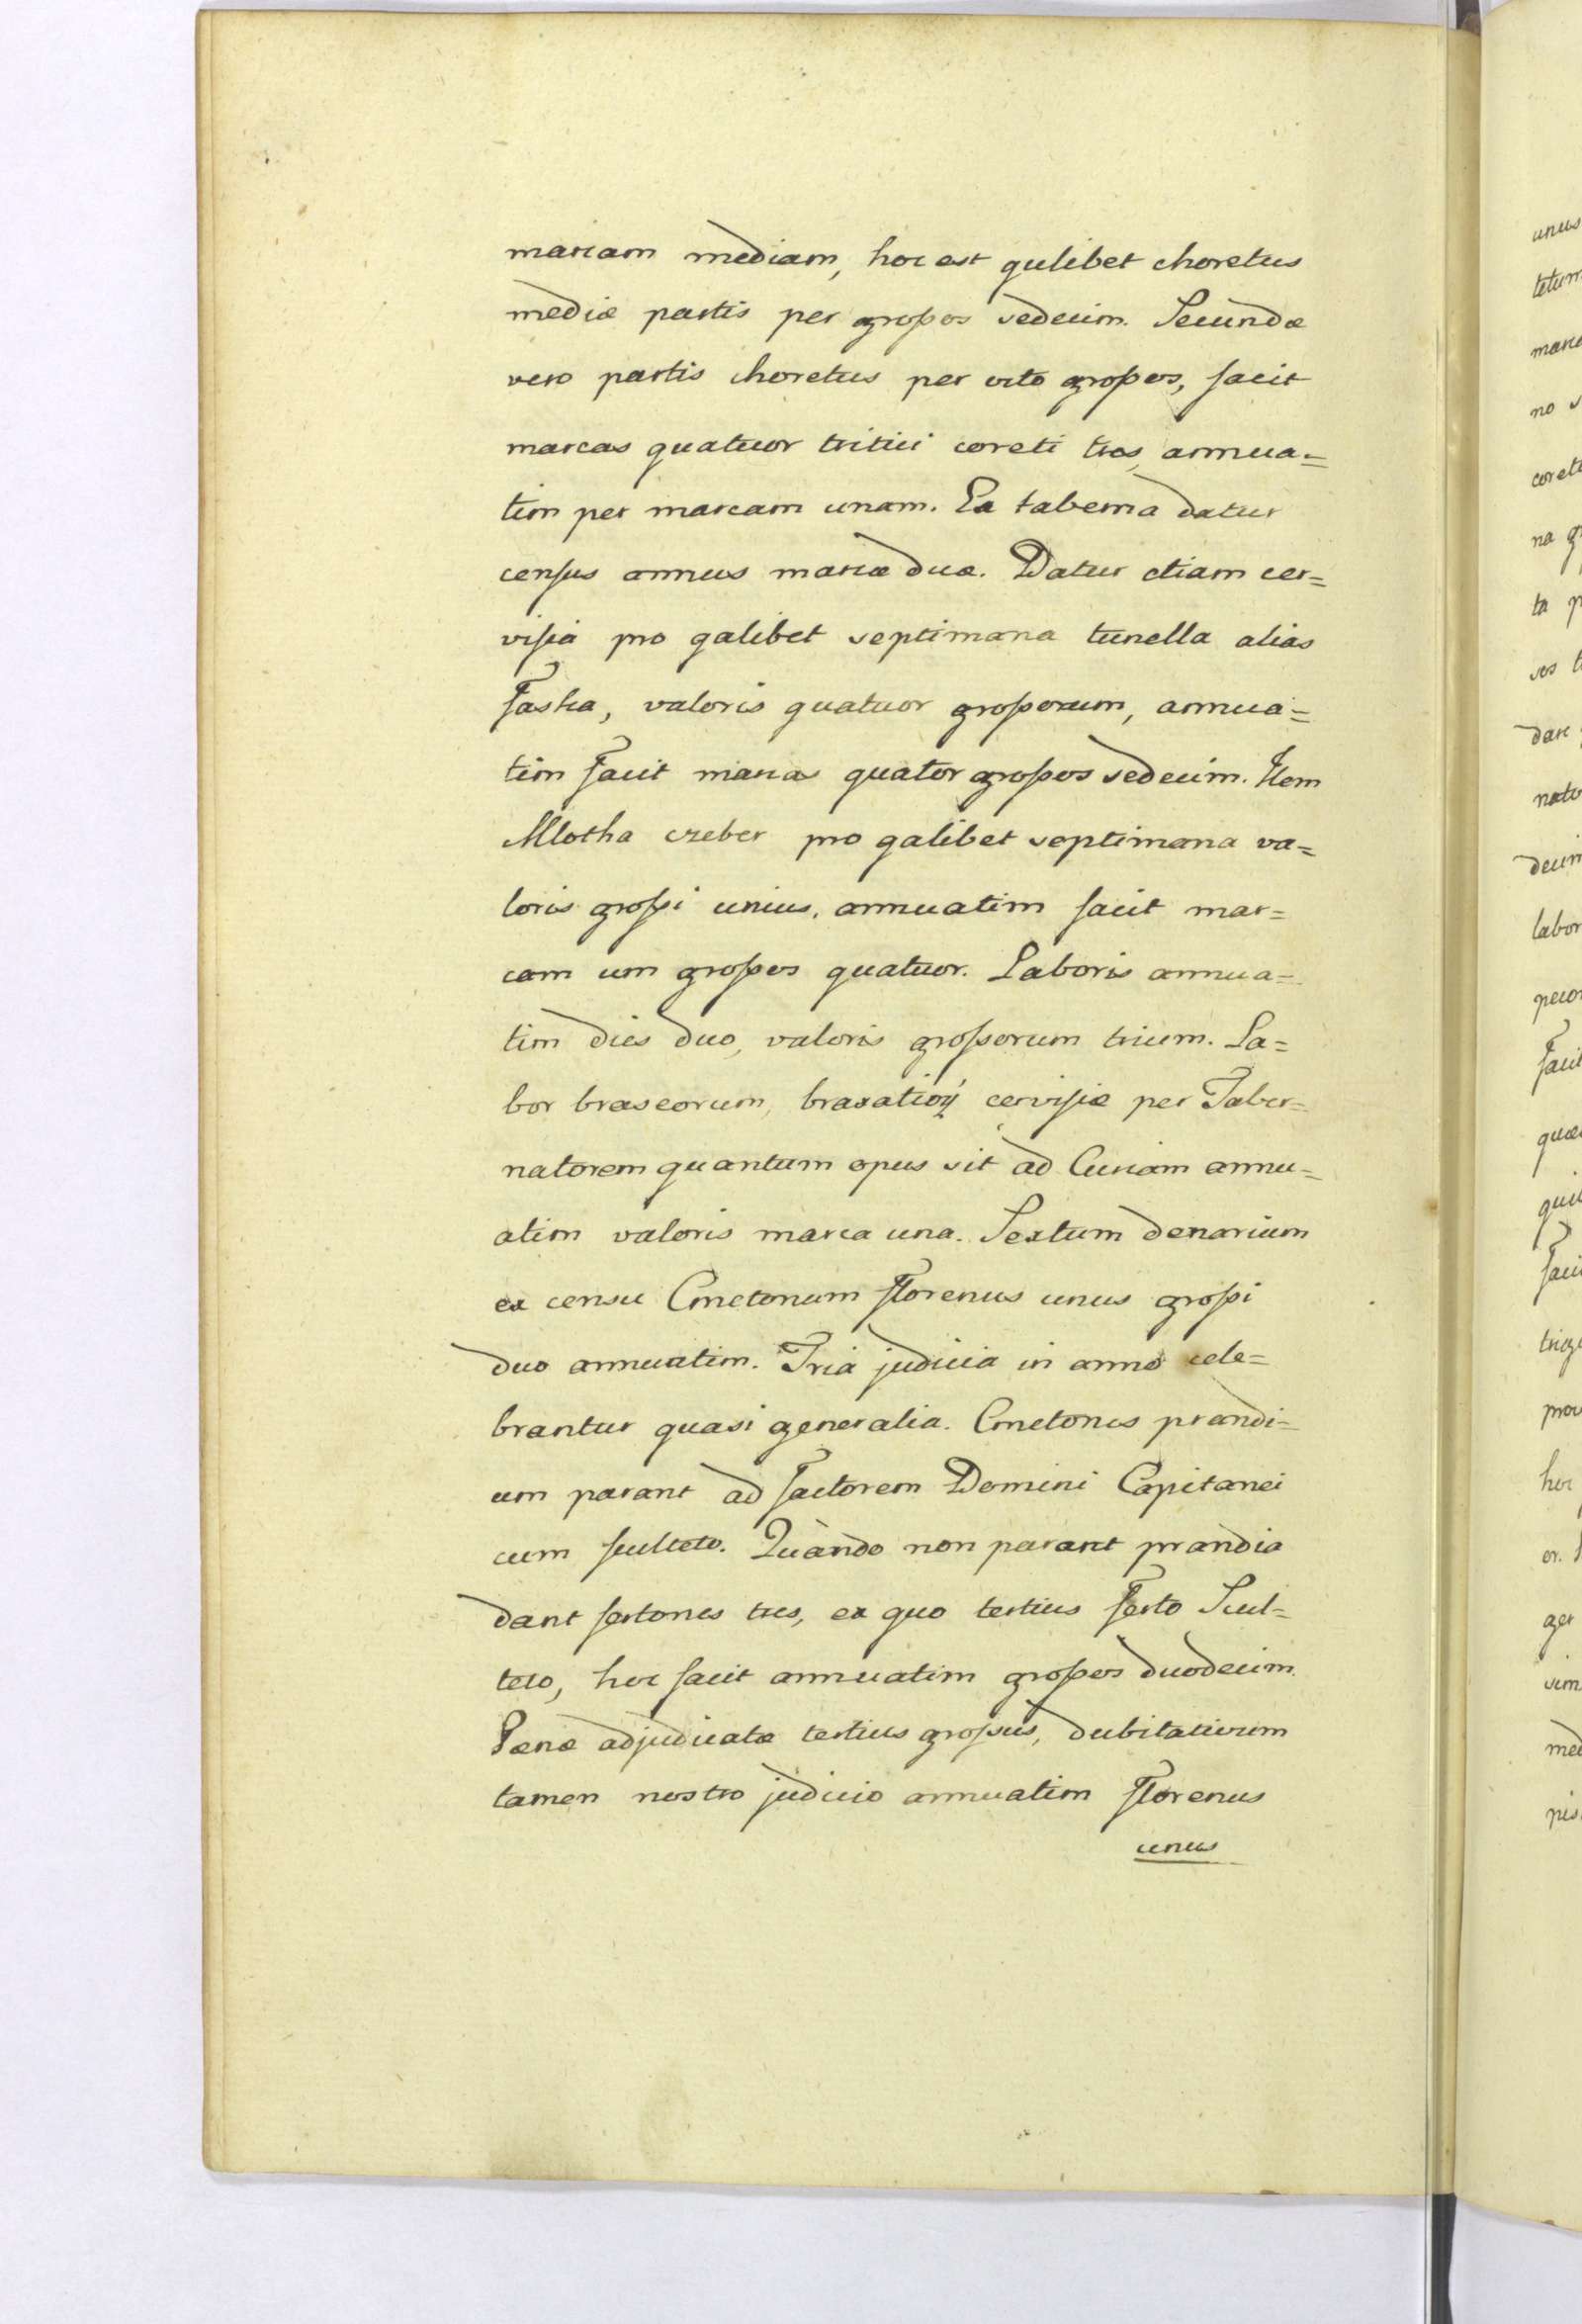 marcam mediam, hoc est qulibet choretus
mediæ partis per grossos sedecim. Secundæ
vero partis choretus per octo grossos, facit
marcas quatuor tritici coreti tres, annua=
tim per marcam unam. Ex taberna datur
census annuus marcæ duæ. Datur etiam cer=
visia pro qalibet septimana tunella alias
Faska, valoris quatuor grossorum, annua=
tim facit marcas quator grossos sedecim. Item
Mlotha czeber pro qalibet septimana va=
loris grossi unius, annuatim facit mar=
cam um grossos quatuor. Laboris annua=
tim dies duo, valoris grossorum trium. La=
bor braseorum, braxatioij cervisiæ per Taber=
natorem quantum opus sit ad Curiam annu=
atim valoris marca una. Sextum denarium
ex censu Cmetonum florenus unus grossi
duo annuatim. Tria judicia in anno cele=
brantur quasi generalia. Cmetones prandi=
um parant ad factorem Domini Capitanei
cum sculteto. Quando non parant prandia
dant fertones tres, ex quo tertius ferto Scul=
teto, hoc facit annuatim grossos duodecim.
Pænæ adjudicatæ tertius grossus, dubitativum
tamen nostro judicio annuatim florenus
unus
unus
tetum
marc
no s
coreti
na g
ta p
ses t
dare
natu
decim
labor
pecor
facit
quæ
qui
faci
trig
prov
hoc
er. S
ger
sim
med
pis